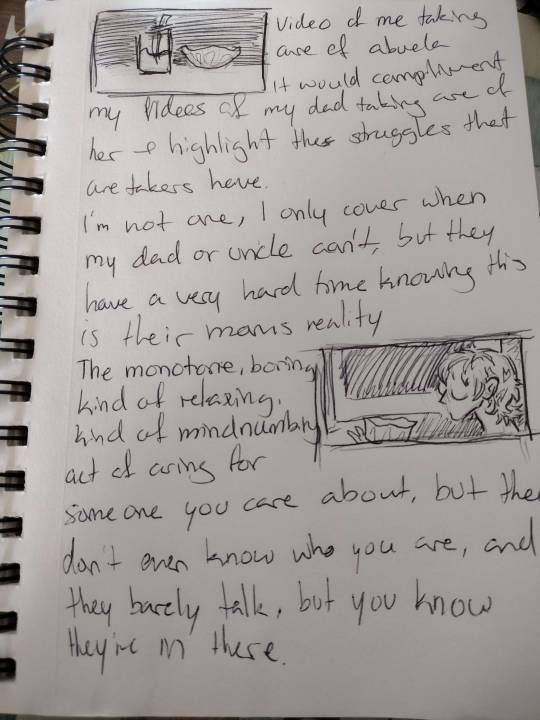 Video of me taking
care of abuela
it would compliment
my videos of my dad taking care of
her & highlight the struggles that
caretakers have.
I'm not one, I only cover when
my dad or uncle can't, but they
have a very hard time knowing this
is their moms reality
The monotone, boring
kind of relaxing,
kind of mindnumbing
act of caring for
someone you care about, but they
don't even know who you are, and
they barely talk, but you know
they're in there.